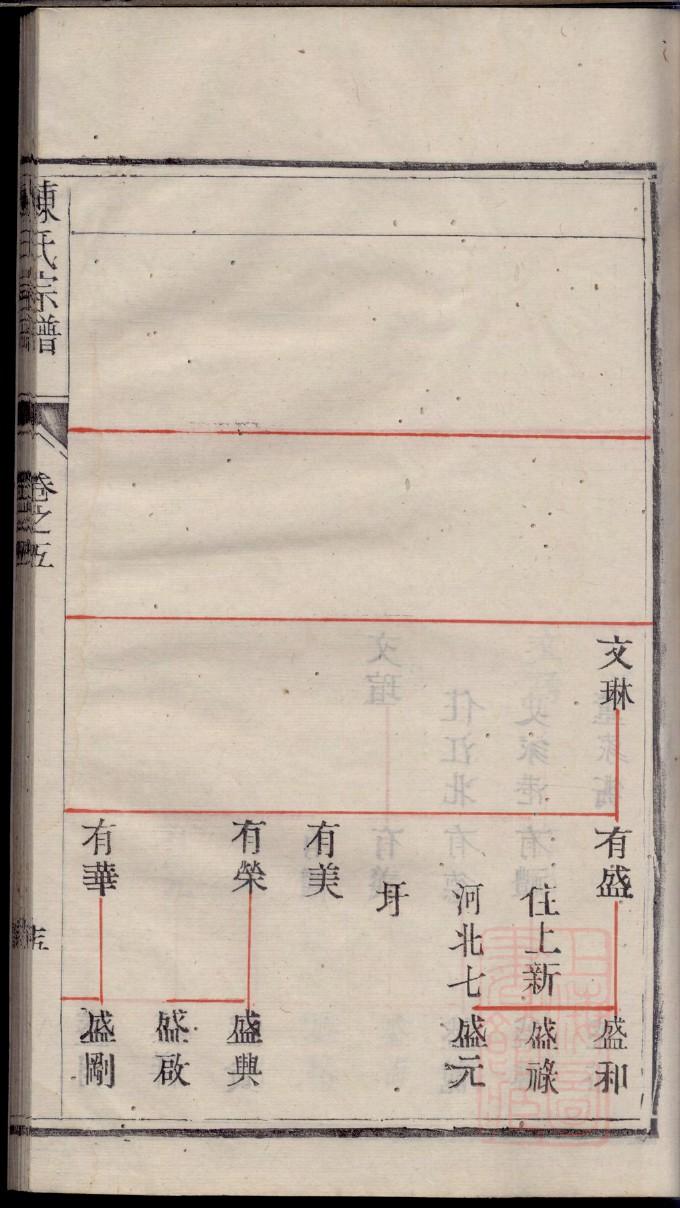 文琳
有盛
盛和
住上新
盛祿
河北七
盛元
圩
有美
有榮
盛興
盛啟
有華
盛剛
陳氏宗譜
卷之五